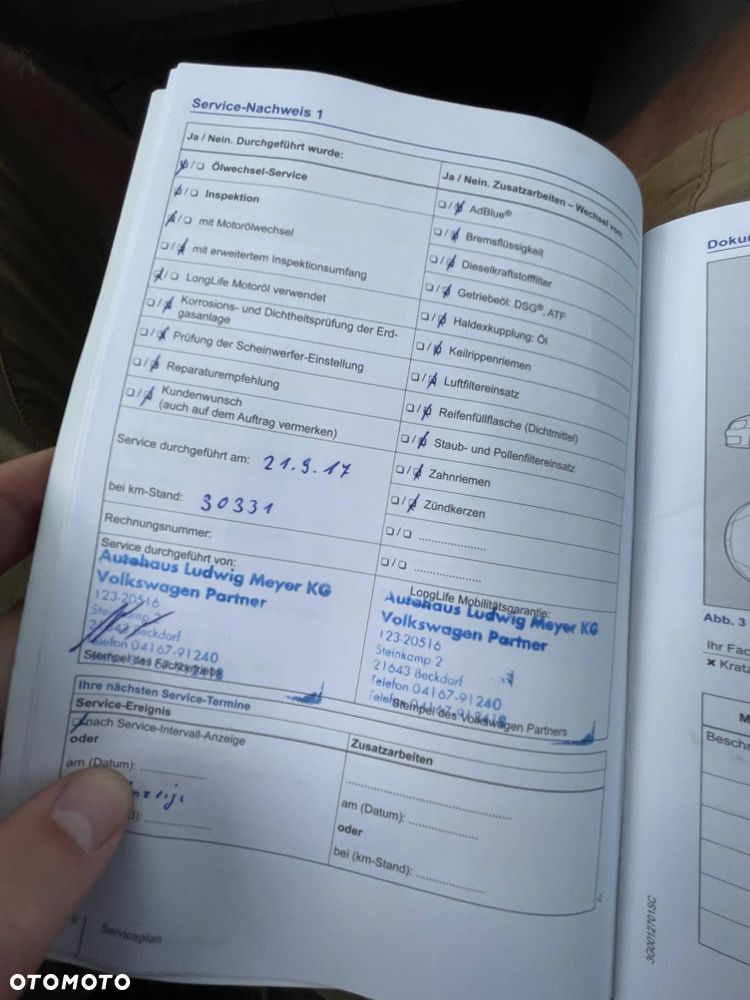 Service-Nachweis 1
Ja / Nein. Durchgeführt wurde:
☒/❏ Ölwechsel-Service
☒/❏ Inspektion
☒/❏ mit Motorölwechsel
❏/☒ mit erweitertem Inspektionsumfang
☒/❏ LongLife Motoröl verwendet
❏/☒ Korrosions- und Dichtheitsprüfung der Erd-
gasanlage
❏/☒ Prüfung der Scheinwerfer-Einstellung
❏/☒ Reparaturempfehlung
❏/☒ Kundenwunsch
(auch auf dem Auftrag vermerken)
Service durchgeführt am: 21.9.17
bei km-Stand: 30331
Rechnungsnummer:
Service durchgeführt von:
Autohaus Ludwig Meyer KG
Volkswagen Partner
123-20516
Steinkamp 2
21643 Beckdorf
Telefon 04167-91240
Stempel des Fachbetriebs
Ja / Nein. Zusatzarbeiten – Wechsel von:
❏/☒ AdBlue®
❏/☒ Bremsflüssigkeit
❏/☒ Dieselkraftstofffilter
❏/☒ Getriebeöl: DSG®, ATF
❏/☒ Haldexkupplung: Öl
❏/☒ Keilrippenriemen
❏/☒ Luftfiltereinsatz
❏/☒ Reifenfüllflasche (Dichtmittel)
❏/☒ Staub- und Pollenfiltereinsatz
❏/☒ Zahnriemen
❏/☒ Zündkerzen
❏/❏ ....................
❏/❏ ....................
LongLife Mobilitätsgarantie:
Autohaus Ludwig Meyer KG
Volkswagen Partner
123-20516
Steinkamp 2
21643 Beckdorf
Telefon 04167-91240
Stempel des Volkswagen Partners
Ihre nächsten Service-Termine
Service-Ereignis
☒ nach Service-Intervall-Anzeige
oder
am (Datum): ....................
Zusatzarbeiten
....................
am (Datum): ....................
oder
bei (km-Stand): ....................
Serviceplan
Abb. 3
3G0012701SC
OTOMOTO